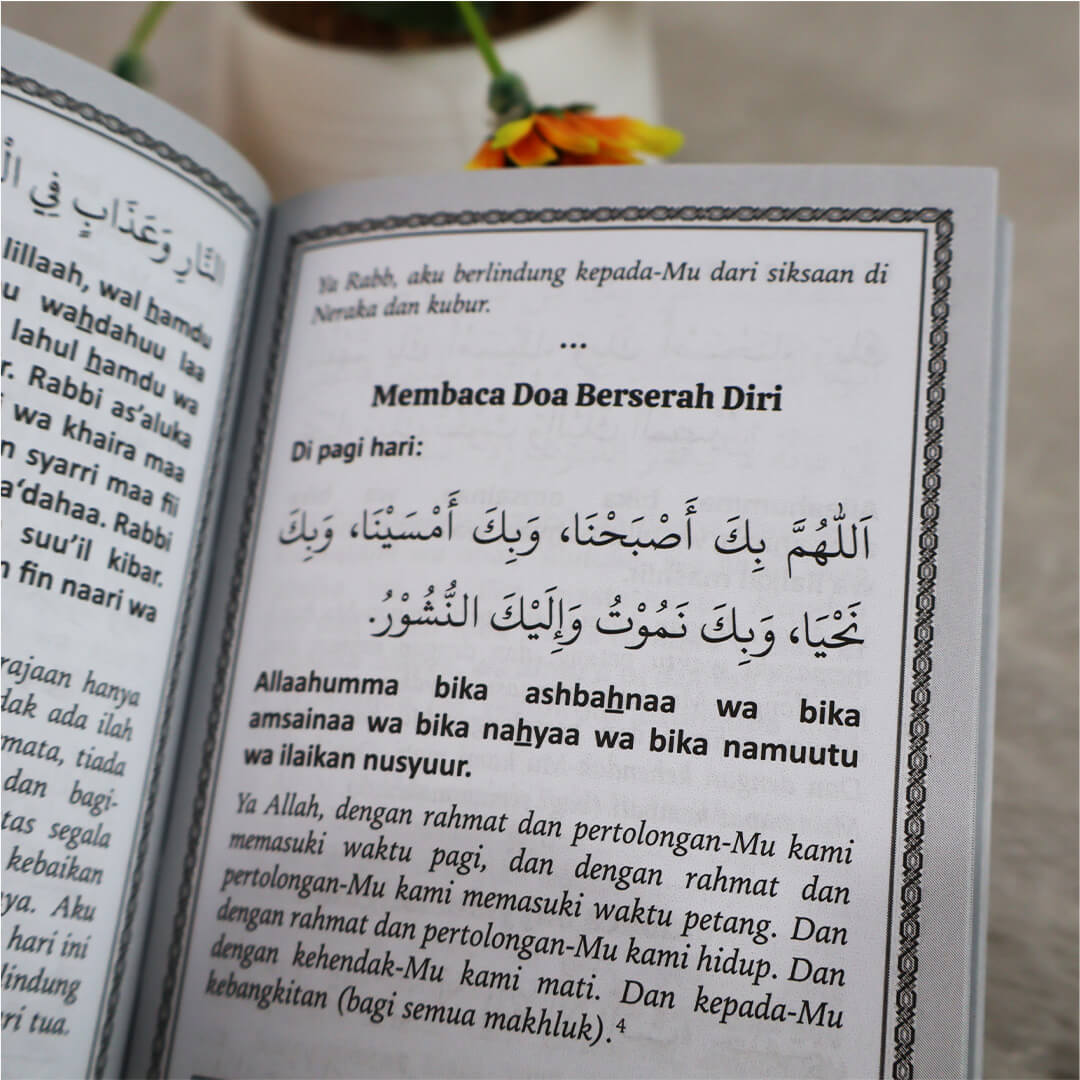 النَّارِ وَعَذَابٍ فِي
lillaah, wal hamdu
wahdahuu laa
lahul hamdu wa
Rabbi as’aluka
wa khaira maa
syarri maa fii
a‘dahaa. Rabbi
suu’il kibar.
fin naari wa
rajaan hanya
dak ada ilah
mata, tiada
dan bagi-
tas segala
kebaikan
ya. Aku
hari ini
lindung
ri tua.
Ya Rabb, aku berlindung kepada-Mu dari siksaan di
Neraka dan kubur.
...
Membaca Doa Berserah Diri
Di pagi hari:
اَللّٰهُمَّ بِكَ أَصْبَحْنَا، وَبِكَ أَمْسَيْنَا، وَبِكَ
نَحْيَا، وَبِكَ نَمُوْتُ وَإِلَيْكَ النُّشُوْرُ.
Allaahumma bika ashbahnaa wa bika
amsainaa wa bika nahyaa wa bika namuutu
wa ilaikan nusyuur.
Ya Allah, dengan rahmat dan pertolongan-Mu kami
memasuki waktu pagi, dan dengan rahmat dan
pertolongan-Mu kami memasuki waktu petang. Dan
dengan rahmat dan pertolongan-Mu kami hidup. Dan
dengan kehendak-Mu kami mati. Dan kepada-Mu
kebangkitan (bagi semua makhluk).⁴